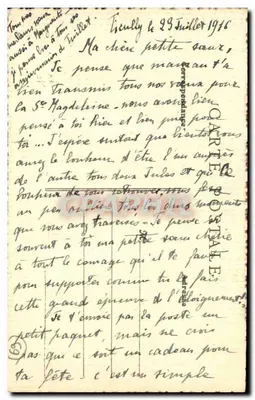 Neuilly le 23 Juillet 1916
Ma chère petite sœur,
Je pense que maman t'a
bien transmis tous nos vœux pour
la Ste Magdeleine - nous avons bien
pensé à toi hier et bien prié pour
toi ... J'espère surtout que bientôt vous
aurez le bonheur d'être l'un auprès
de l'autre tous deux Jules et que le
bonheur de vous retrouver vous fera
un peu oublier les durs moments
que vous avez traversés - Je pense si
souvent à toi ma petite sœur chérie
à tout le courage qu'il te faut
pour supporter comme tu le fais
cette grande épreuve de l'éloignement.
Je t'envoie par la poste un
petit paquet, mais ne crois
pas que ce soit un cadeau pour
ta fête - c'est un simple
CARTE POSTALE
Correspondance
Adresse